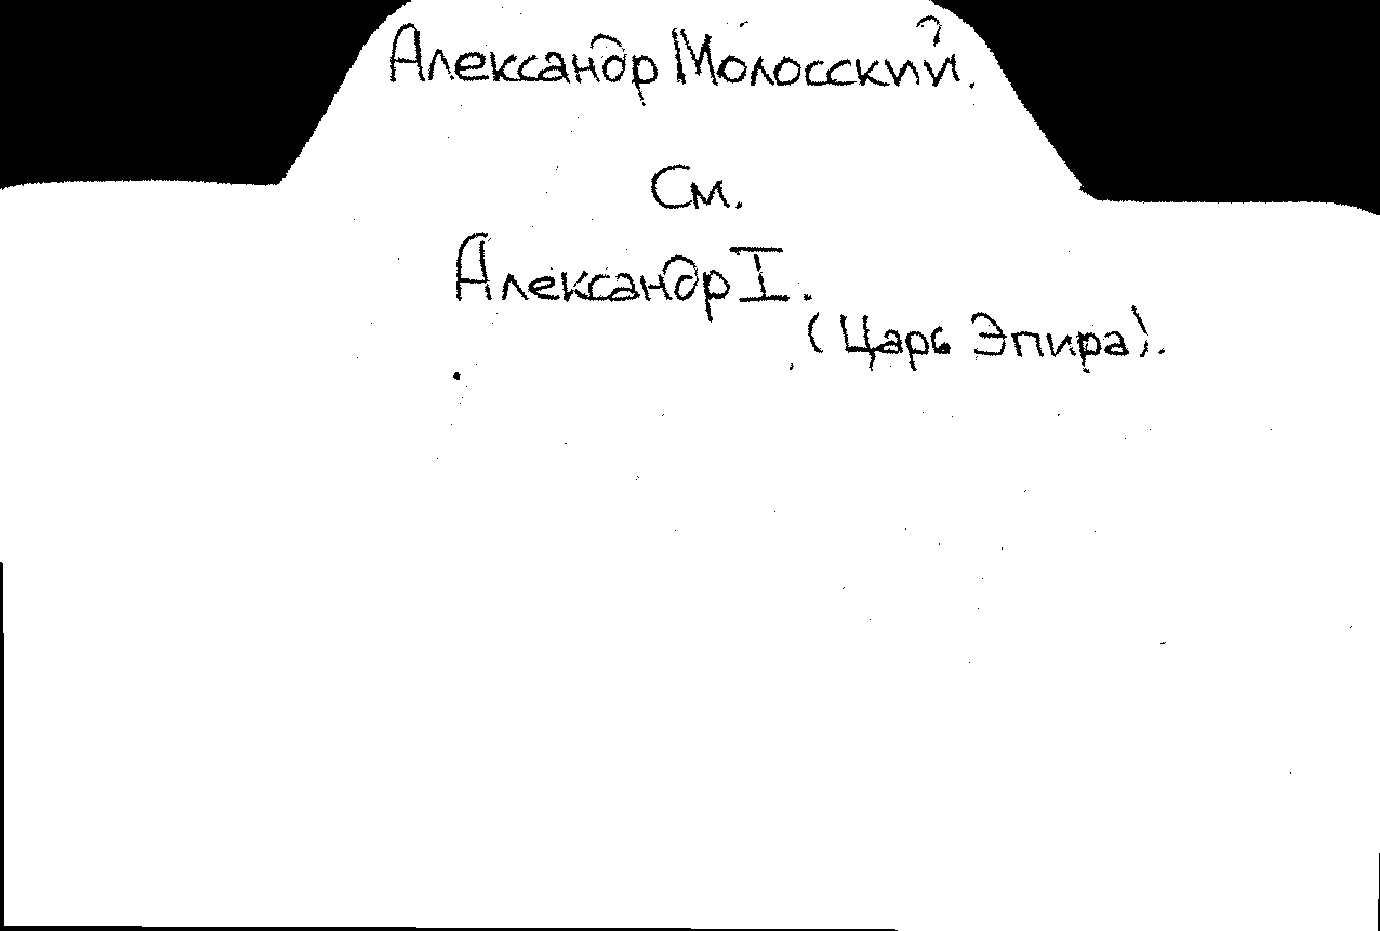 Александр Молосский.
См.
Александр I.
(Царь Эпира).